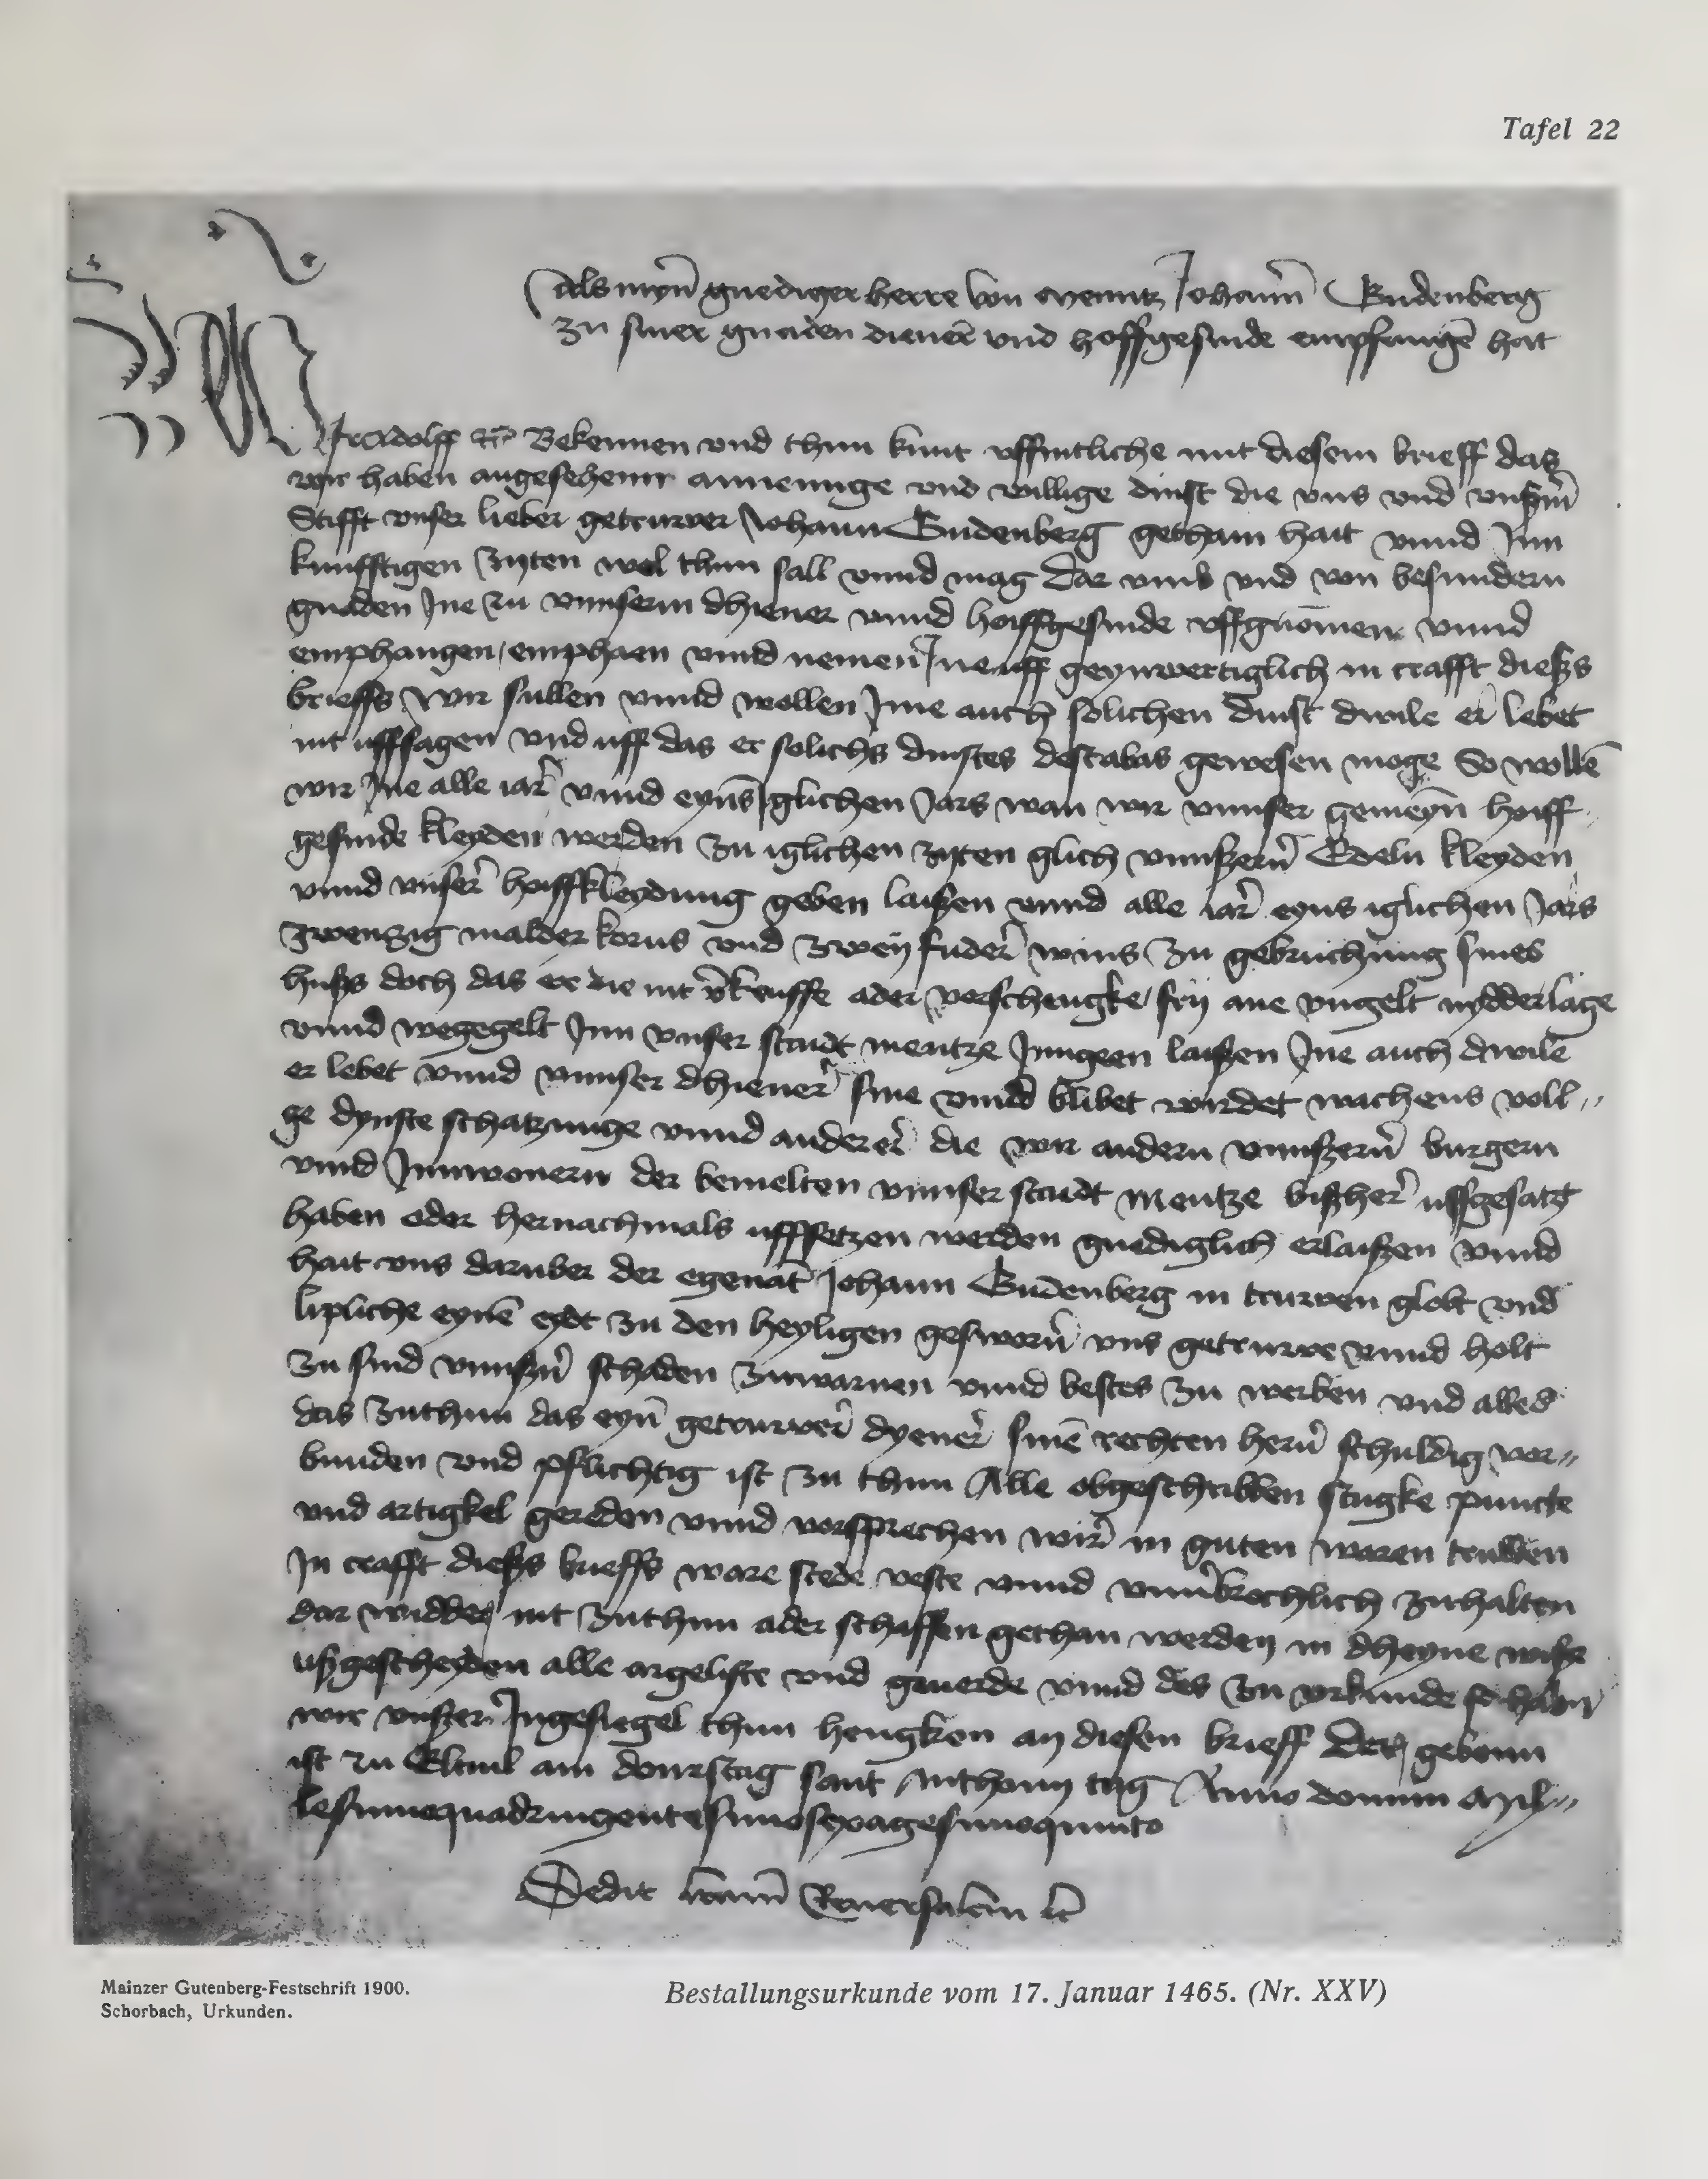 Tafel 22
Als myn̄ gnediger herre von Mentz Johan̄n Gudenberg
zu siner gnaden dienēr vnd hoffgesinde empfangē hat
Wir Adolff ꝛc Bekennen vnd thun kunt uffintliche mit diesem brieff das
wir haben angesehenn annemige vnd willige dinst die vns vnd vnßm̄
Stifft vnser lieber getruwer Johann Gudenberg gethann hait vnnd Jnn
kunfftigen zyten wol thun sall vnnd mag dar vmb vnd von besundern
gnaden Jne zu vnnserm dhiener vnnd hoiffgesinde uffgnom̄en vnnd
emphangen, emphaen vnnd nemen Jne uff geynwertiglich in crafft dießs
brieffs wir sullen vnnd wollen Jme auch solichen dinst dwile er lebet
nit uffsagen vnd uff das er solichs dinstes destabas gewesen moge So wollē
wir Jne alle iar vnnd eyns iglichen Jars wan wir vnnser gemeyn̄ hoiff
gesinde kleyden werden zu iglichen zyten glich vnnßern̄ Edeln kleyden
vnnd vnser hoiffkleydung geben laißen vnnd alle iar eyns iglichen Jars
zwenzig malder korns vnd zwey fuder wins zu gebruchung sines
hußs doch das er die nit v̄keuffe ader vorschengke, fry ane vngelt nydderlage
vnnd wegegelt Jnn vnser stadt mentze Jnngeen laißen Jne auch dwile
er lebet vnnd vnnser dhiener sine vnnd blibet wirdet wachens voll„
ge dynste schatzunge vnnd anderer die wir andern vnnßern̄ burgern
vnnd Jnnwonern der bemelten vnnser stadt mentze bißher uffgesatzt
haben oder hernachmals ufffsetzen werden gnediglich erlaißen vnnd
hait vns daruber der egenāt Johann Gudenberg in truwen globt vnd
lipliche eynē eydt zu den heyligen gesworn̄ vns getruwe vnnd holt
zu sind vnnßn̄ schaden zuwarnen vnnd bestes zu werben vnd alles
das zuthun das eyn̄ getruwer dyener sinē rechten hern̄ schuldig vor„
bunden vnd pflichtig ist zu thun Alle obgeschribben stugke puncte
vnd artigkel gereden vnnd vorsprechen wir in guten waren truwen
Jn crafft dießs brieffs ware stede veste vnnd vnūbrochlich zuhalten
dar widder nit zuthun ader schaffen gethan werden in dheyne wiße
ußgescheyden alle argeliste vnd geuerde vnnd des zu vrkunde so haben
wir vnßer Jngesiegel thun hengken an diesen brieff Der geben
ist zu Eltuil am donrstag sant Anthony tag Anno domini Mil„
lesimoquadringentesimosexagesimoquinto
Dedit Reuersalem ꝛc
Mainzer Gutenberg-Festschrift 1900.
Schorbach, Urkunden.
Bestallungsurkunde vom 17. Januar 1465. (Nr. XXV)